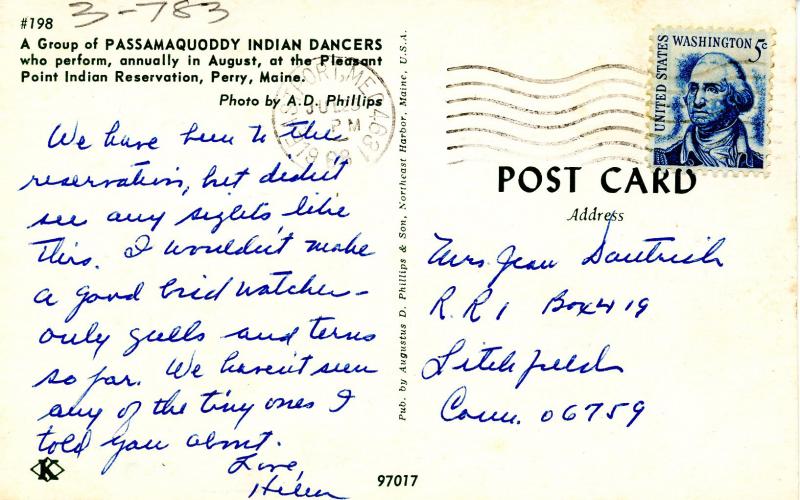 3-783
#198
A Group of PASSAMAQUODDY INDIAN DANCERS
who perform, annually in August, at the Pleasant
Point Indian Reservation, Perry, Maine.
Photo by A.D. Phillips
We have been to the
reservation, but didn't
see any sights like
this. I wouldn't make
a good bird watcher-
only gulls and terns
so far. We haven't seen
any of the tiny ones I
told you about.
Love,
Helen
K
97017
Pub. by Augustus D. Phillips & Son, Northeast Harbor, Maine, U.S.A.
EASTPORT, ME 04631
PM
UNITED STATES
WASHINGTON 5c
POST CARD
Address
Mrs. Jean Dautrich
R.R 1 Box 419
Litchfield
Conn. 06759